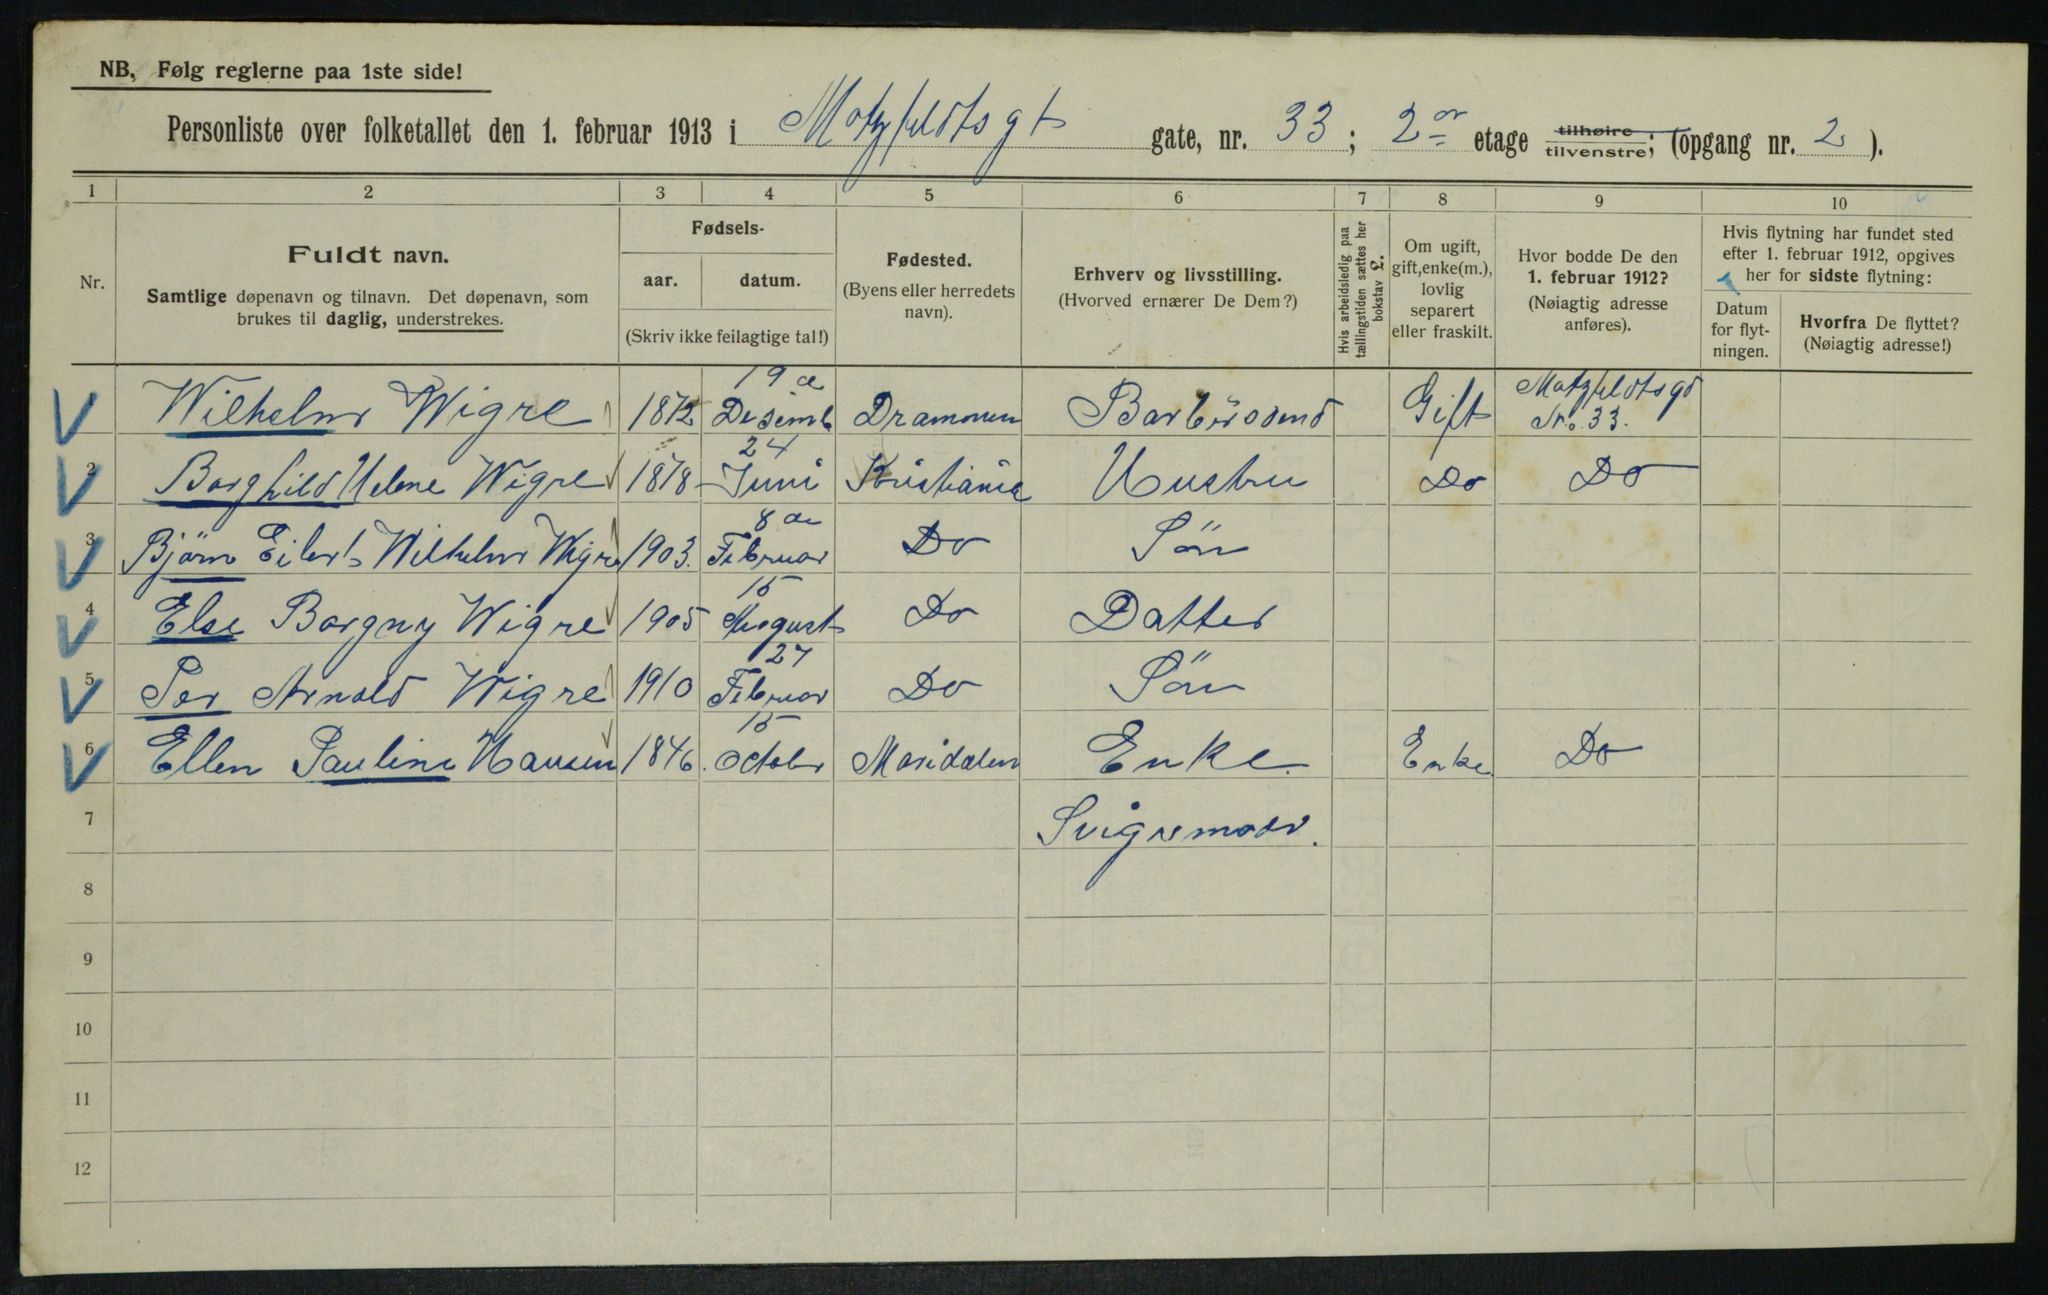 NB, Følg reglerne paa 1ste side!
Personliste over folketallet den 1. februar 1913 i Motzfeldtsgt gate, nr. 33; 2er etage tilhøire tilvenstre; (opgang nr. 2).
1 2 3 4 5 6 7 8 9 10
Nr.
Fuldt navn.
Samtlige døpenavn og tilnavn. Det døpenavn, som
brukes til daglig, understrekes.
Fødsels-
aar. datum.
(Skriv ikke feilagtige tal!)
Fødested.
(Byens eller herredets
navn).
Erhverv og livsstilling.
(Hvorved ernærer De Dem?)
Hvis arbeidsledig paa
tællingstiden sættes her
bokstav L.
Om ugift,
gift, enke(m.),
lovlig
separert
eller fraskilt.
Hvor bodde De den
1. februar 1912?
(Nøiagtig adresse
anføres).
Hvis flytning har fundet sted
efter 1. februar 1912, opgives
her for sidste flytning:
Datum
for flyt-
ningen.
Hvorfra De flyttet?
(Nøiagtig adresse!)
Wilhelm Wigre 1872 19de Desemb Drammen Barbersvend Gift Motzfeldtsgd No. 33.
2 Borghild Helene Wigre 1878 24 Juni Kristiania Hustru Do Do
3 Bjørn Eilert Wilhelm Wigre 1903. 8de Februar Do Søn
4 Else Borgny Wigre 1905 15 August Do Datter
5 Per Arnold Wigre 1910 27 Februar Do Søn
6 Ellen Pauline Hansen 1846. 15 October Maridalen Enke. Enke Do
7 Svigremoder.
8
9
10
11
12